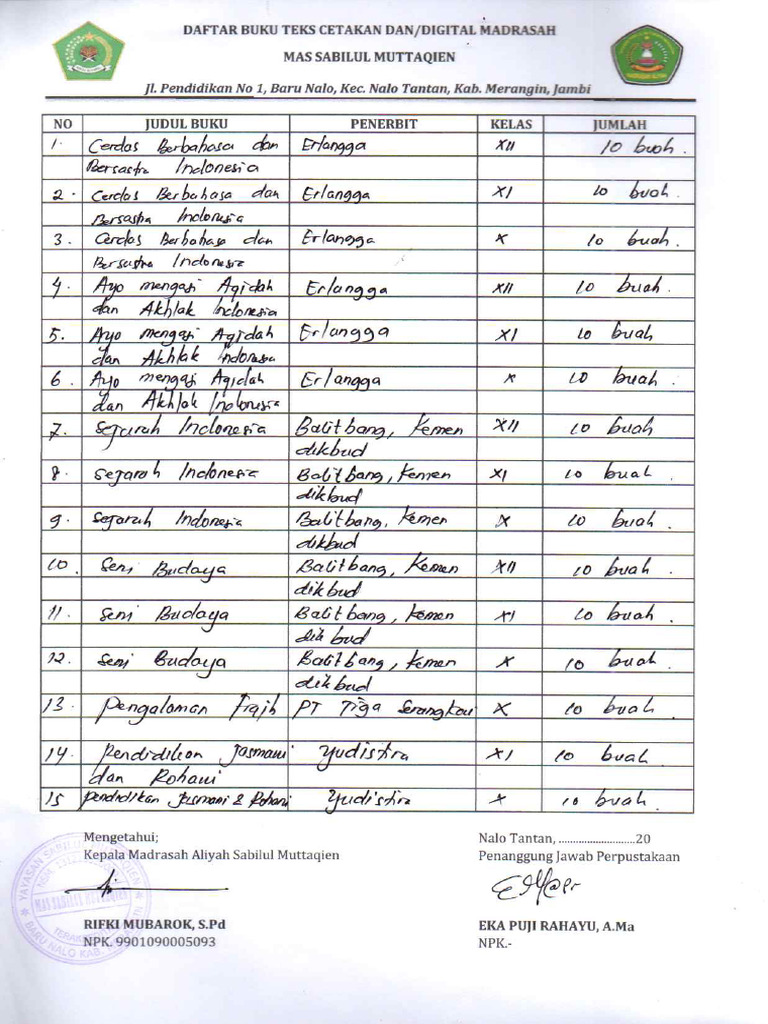 DAFTAR BUKU TEKS CETAKAN DAN/DIGITAL MADRASAH
MAS SABILUL MUTTAQIEN
Jl. Pendidikan No 1, Baru Nalo, Kec. Nalo Tantan, Kab. Merangin, Jambi
NO JUDUL BUKU PENERBIT KELAS JUMLAH
1. Cerdas Berbahasa dan Erlangga XII 10 buah.
Bersastra Indonesia
2. Cerdas Berbahasa dan Erlangga XI 10 buah.
Bersastra Indonesia
3. Cerdas Berbahasa dan Erlangga X 10 buah.
Bersastra Indonesia
4. Ayo mengaji Aqidah Erlangga XII 10 buah.
dan Akhlak Indonesia
5. Ayo mengaji Aqidah Erlangga XI 10 buah.
dan Akhlak Indonesia
6. Ayo mengaji Aqidah Erlangga X 10 buah.
dan Akhlak Indonesia
7. Sejarah Indonesia Balitbang, Kemen XII 10 buah
dikbud
8. Sejarah Indonesia Balitbang, Kemen XI 10 buah.
dikbud
9. Sejarah Indonesia Balitbang, Kemen X 10 buah.
dikbud
10. Seni Budaya Balitbang, Kemen XII 10 buah.
dikbud
11. Seni Budaya Balitbang, Kemen XI 10 buah.
dikbud
12. Seni Budaya Balitbang, Kemen X 10 buah.
dikbud
13. Pengalaman Fiqih PT Tiga Serangkai X 10 buah.
14. Pendidikan Jasmani Yudistira XI 10 buah.
dan Rohani
15 Pendidikan Jasmani & Rohani Yudistira X 10 buah.
Mengetahui;
Kepala Madrasah Aliyah Sabilul Muttaqien
Nalo Tantan, ..........................20
Penanggung Jawab Perpustakaan
YAYASAN SABILUL MUTTAQIEN
MAS SABILUL MUTTAQIEN
RIFKI MUBAROK, S.Pd
NPK. 9901090005093
EKA PUJI RAHAYU, A.Ma
NPK.-